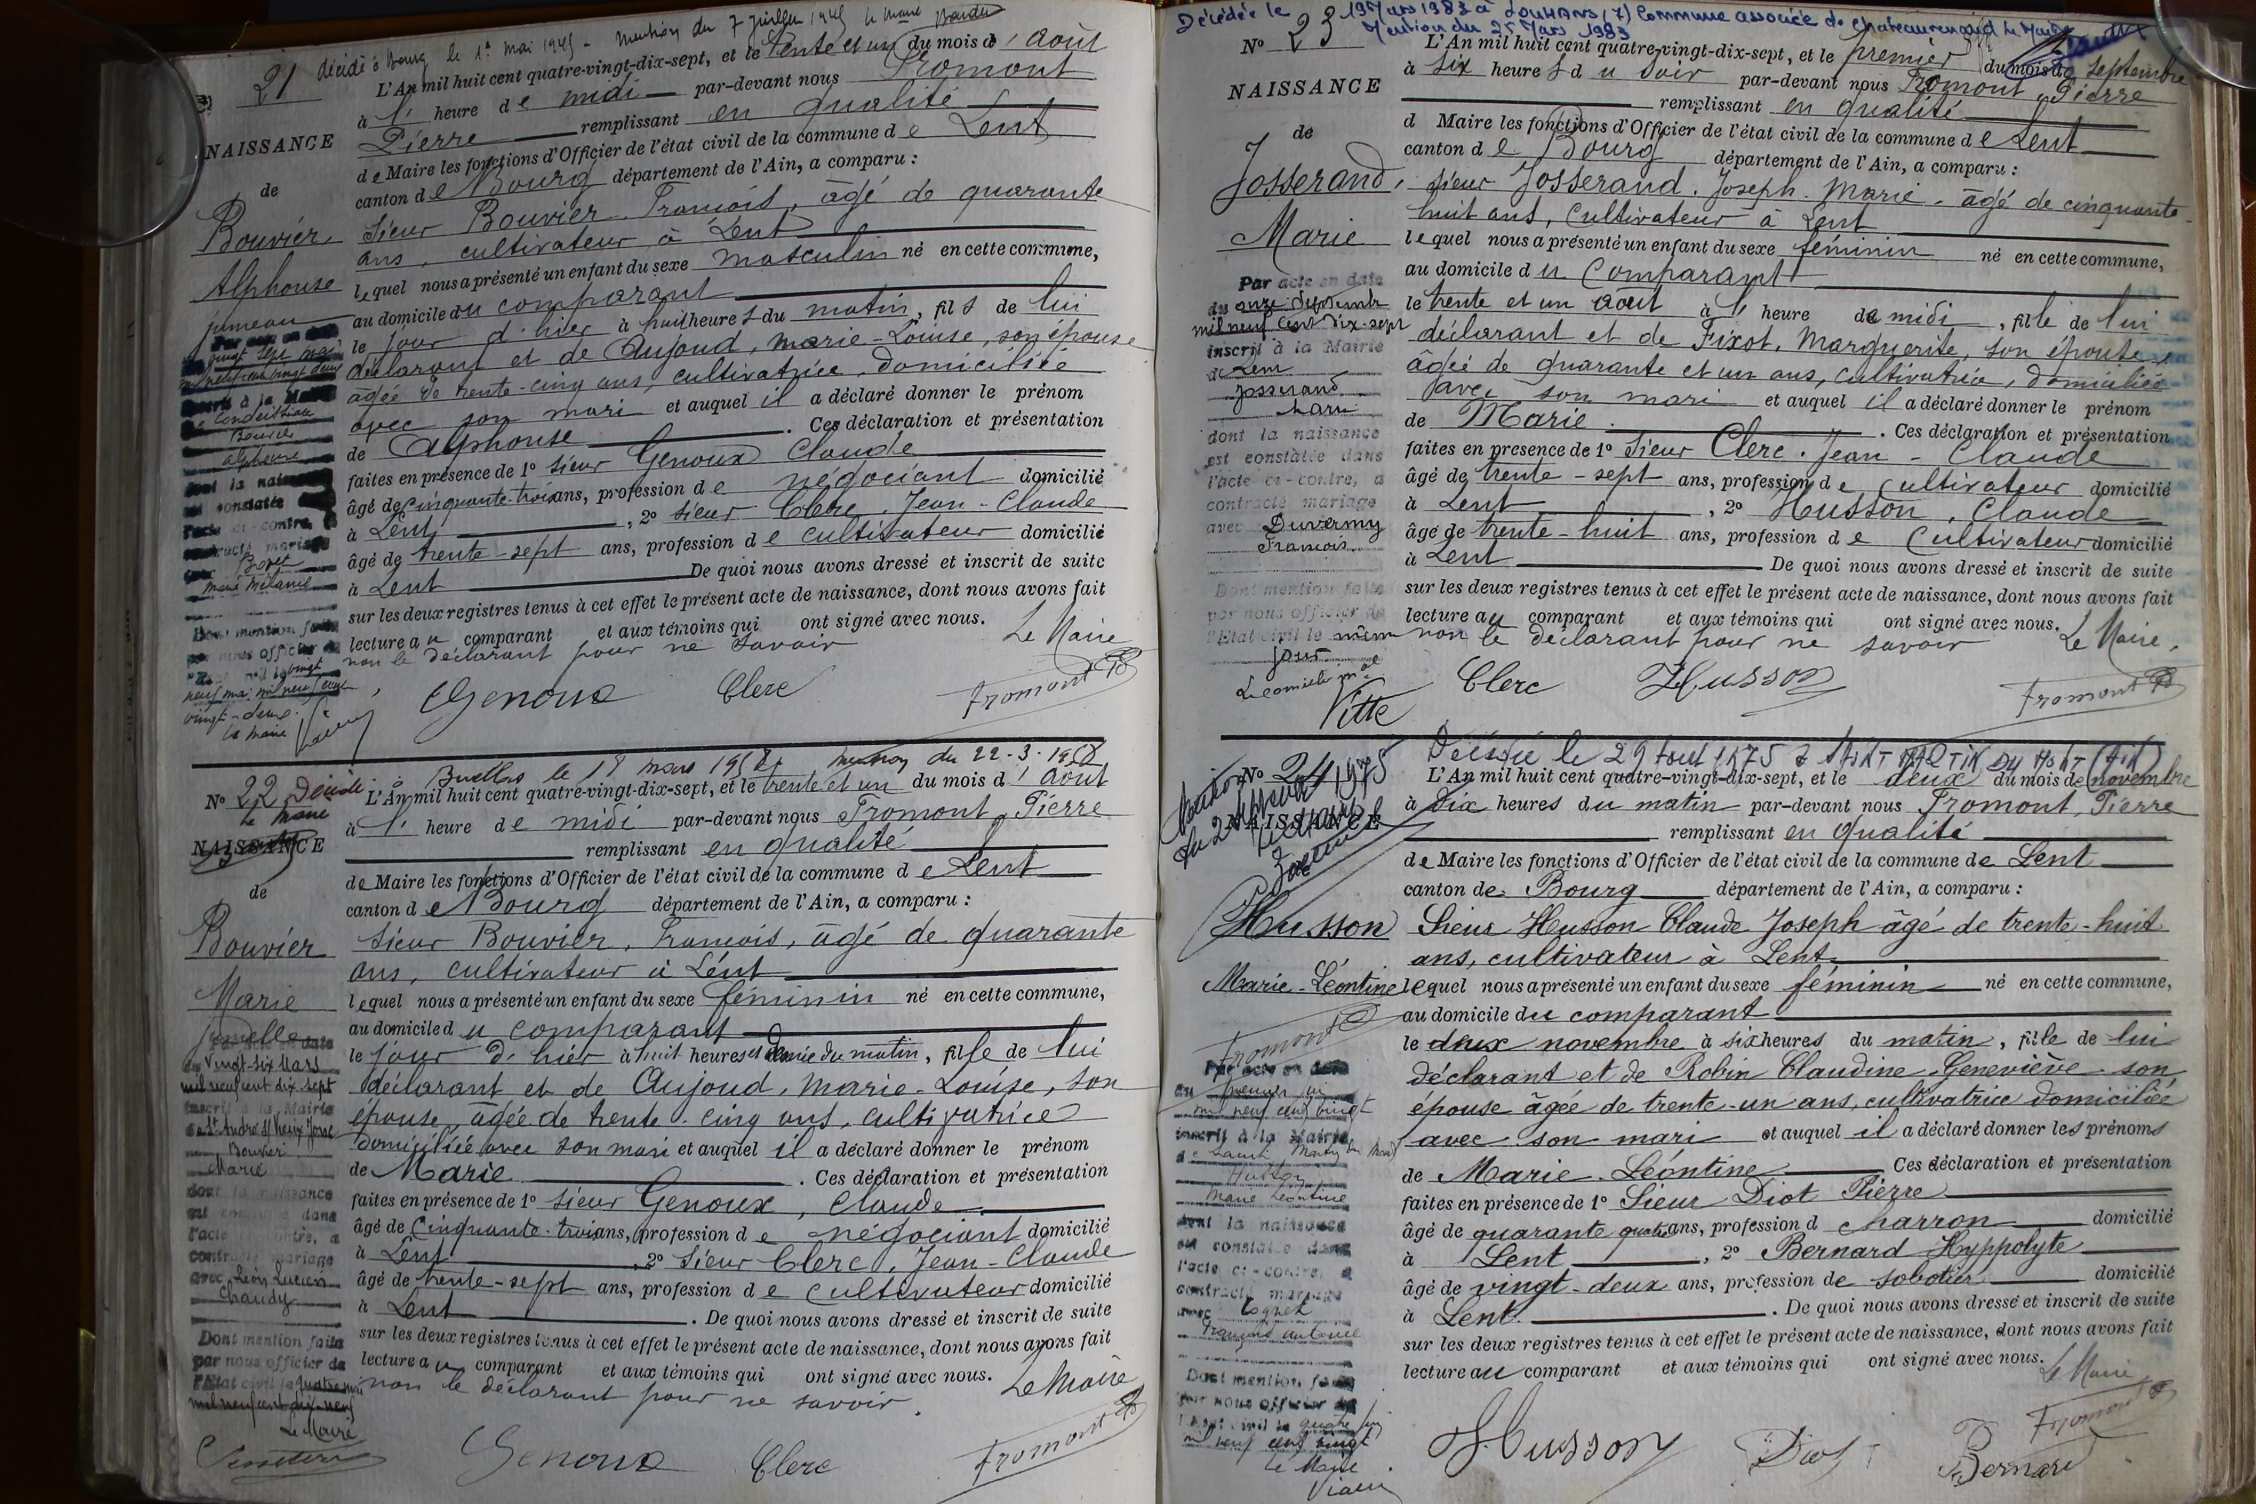 21
décédé à Bourg le 1er mai 1945 - mention du 7 juillet 1945 le maire
NAISSANCE
de
Bouvier
Alphonse
jumeau
Par acte en date
vingt sept mai
mil neuf cent vingt deux
inscrit à la Mairie
de Condeissiat
Bouvier
Alphonse
dont la naissance
est constatée dans
l'acte ci-contre, a
contracté mariage
avec
Marie Mélanie
Dont mention faite
par nous officier de
l'Etat civil le vingt
neuf mai mil neuf cent
vingt-deux.
Le Maire
L'An mil huit cent quatre-vingt-dix-sept, et le trente et un du mois d'août
à l' heure de midi par-devant nous Fromont
Pierre remplissant en qualité
de Maire les fonctions d'Officier de l'état civil de la commune de Lent
canton de Bourg département de l'Ain, a comparu :
sieur Bouvier François, âgé de quarante
ans, cultivateur à Lent
lequel nous a présenté un enfant du sexe masculin né en cette commune,
au domicile du comparant
le jour d'hier à huit heures du matin, fils de lui
déclarant et de Aujoud, Marie-Louise, son épouse
âgée de trente-cinq ans, cultivatrice, domiciliée
avec son mari et auquel il a déclaré donner le prénom
de Alphonse. Ces déclaration et présentation
faites en présence de 1º sieur Genoux Claude
âgé de cinquante-trois ans, profession de négociant domicilié
à Lent, 2º sieur Clerc, Jean-Claude
âgé de trente-sept ans, profession de cultivateur domicilié
à Lent De quoi nous avons dressé et inscrit de suite
sur les deux registres tenus à cet effet le présent acte de naissance, dont nous avons fait
lecture au comparant et aux témoins qui ont signé avec nous.
non le déclarant pour ne savoir Le Maire
Genoux Clerc Fromont
Nº 22 Décédé à le 18 mars 1958 mention du 22-3-1958
le Maire
NAISSANCE
de
Bouvier
Marie
jumelle
Par acte en date
du vingt-six Mars
mil neuf cent dix-sept
inscrit à la Mairie
de St André
Bouvier
Marie
dont la naissance
est constatée dans
l'acte ci-contre, a
contracté mariage
avec Léon Lucien
Chaudy
Dont mention faite
par nous officier de
l'Etat civil le quatre mai
mil neuf cent dix-neuf
Le Maire
L'An mil huit cent quatre-vingt-dix-sept, et le trente et un du mois d'août
à l' heure de midi par-devant nous Fromont, Pierre
remplissant en qualité
de Maire les fonctions d'Officier de l'état civil de la commune de Lent
canton de Bourg département de l'Ain, a comparu :
sieur Bouvier, François, âgé de quarante
ans, cultivateur à Lent
lequel nous a présenté un enfant du sexe féminin né en cette commune,
au domicile du comparant
le jour d'hier à huit heures et demie du matin, fille de lui
déclarant et de Aujoud, Marie-Louise, son
épouse, âgée de trente-cinq ans, cultivatrice
domiciliée avec son mari et auquel il a déclaré donner le prénom
de Marie. Ces déclaration et présentation
faites en présence de 1º sieur Genoux, Claude
âgé de cinquante-trois ans, profession de négociant domicilié
à Lent, 2º sieur Clerc, Jean-Claude
âgé de trente-sept ans, profession de cultivateur domicilié
à Lent. De quoi nous avons dressé et inscrit de suite
sur les deux registres tenus à cet effet le présent acte de naissance, dont nous avons fait
lecture au comparant et aux témoins qui ont signé avec nous.
non le déclarant pour ne savoir. Le Maire
Genoux Clerc Fromont
Décédée le 19 Mars 1983 à LOUHANS (71) Commune associée de Chateaurenaud Le Maire
Mention du 25 Mars 1983
Nº 23
NAISSANCE
de
Josserand,
Marie
Par acte en date
du onze Septembre
mil neuf cent dix-sept
inscrit à la Mairie
de Lent
Josserand
Marie
dont la naissance
est constatée dans
l'acte ci-contre, a
contracté mariage
avec Duvermy
François
Dont mention faite
par nous officier de
l'Etat civil le même
jour
Vitte
L'An mil huit cent quatre-vingt-dix-sept, et le premier du mois de Septembre
à six heures du soir par-devant nous Fromont, Pierre
remplissant en qualité
d Maire les fonctions d'Officier de l'état civil de la commune de Lent
canton de Bourg département de l'Ain, a comparu :
sieur Josserand, Joseph-Marie, âgé de cinquante-
huit ans, cultivateur à Lent
lequel nous a présenté un enfant du sexe féminin né en cette commune,
au domicile du comparant
le trente et un août à l' heure de midi, fille de lui
déclarant et de Fixot, Marguerite, son épouse,
âgée de quarante et un ans, cultivatrice, domiciliée
avec son mari et auquel il a déclaré donner le prénom
de Marie. Ces déclaration et présentation
faites en présence de 1º sieur Clerc, Jean-Claude
âgé de trente-sept ans, profession de cultivateur domicilié
à Lent, 2º Husson, Claude
âgé de trente-huit ans, profession de cultivateur domicilié
à Lent De quoi nous avons dressé et inscrit de suite
sur les deux registres tenus à cet effet le présent acte de naissance, dont nous avons fait
lecture au comparant et aux témoins qui ont signé avec nous.
non le déclarant pour ne savoir Le Maire,
Clerc Husson Fromont
Décédée le 29 août 1975 à SAINT MARTIN DU MONT (AIN)
Nº 24
Mention du 2 septembre 1975
Le Maire
NAISSANCE
Husson
Marie-Léontine
Fromont
Par acte en date
du premier
mil neuf cent vingt
inscrit à la Mairie
de Saint Martin du Mont
Husson
Marie Léontine
dont la naissance
est constatée dans
l'acte ci-contre, a
contracté mariage
avec
François Antoine
Dont mention faite
par nous officier de
l'Etat civil le quatre
mil neuf cent vingt
Le Maire
L'An mil huit cent quatre-vingt-dix-sept, et le deux du mois de novembre
à dix heures du matin par-devant nous Fromont, Pierre
remplissant en qualité
de Maire les fonctions d'Officier de l'état civil de la commune de Lent
canton de Bourg département de l'Ain, a comparu :
Sieur Husson Claude Joseph âgé de trente-huit
ans, cultivateur à Lent
lequel nous a présenté un enfant du sexe féminin né en cette commune,
au domicile du comparant
le deux novembre à six heures du matin, fille de lui
déclarant et de Robin Claudine-Geneviève son
épouse âgée de trente-un ans, cultivatrice domiciliée
avec son mari et auquel il a déclaré donner les prénoms
de Marie-Léontine Ces déclaration et présentation
faites en présence de 1º Sieur Diot Pierre
âgé de quarante quatre ans, profession d charron domicilié
à Lent, 2º Bernard Hyppolyte
âgé de vingt-deux ans, profession de sabotier domicilié
à Lent. De quoi nous avons dressé et inscrit de suite
sur les deux registres tenus à cet effet le présent acte de naissance, dont nous avons fait
lecture au comparant et aux témoins qui ont signé avec nous.
Le Maire
Husson Diot Bernard Fromont